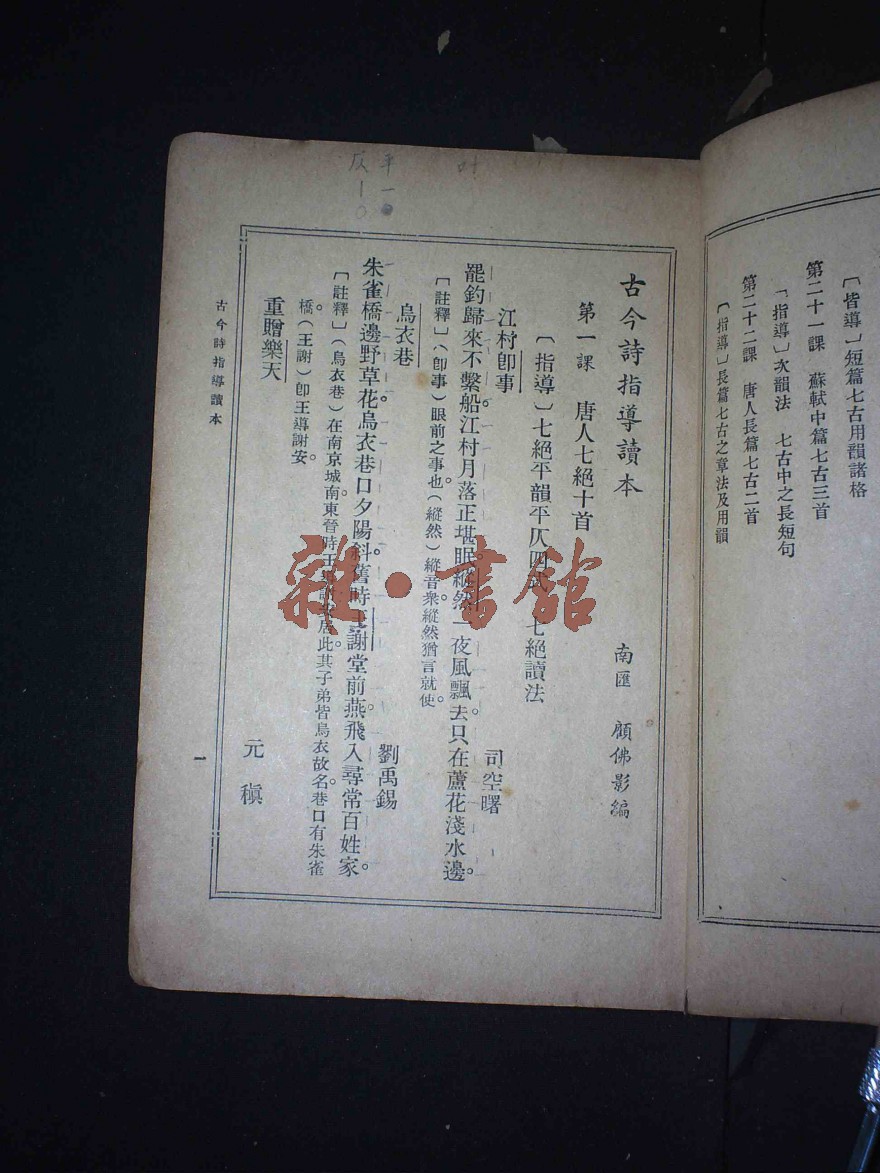 〔指導〕短篇七古用韻諸格
第二十一課　蘇軾中篇七古三首
〔指導〕次韻法　七古中之長短句
第二十二課　唐人長篇七古二首
〔指導〕長篇七古之章法及用韻
古今詩指導讀本
南匯　顧佛影編
第一課　唐人七絕十首
〔指導〕七絕平韻平仄四式　七絕讀法
江村卽事　司空曙
罷釣歸來不繫船。江村月落正堪眠。縱然一夜風飄去。只在蘆花淺水邊。
〔註釋〕（卽事）眼前之事也（縱然）縱音衆。縱然猶言就使。
烏衣巷　劉禹錫
朱雀橋邊野草花。烏衣巷口夕陽斜。舊時王謝堂前燕。飛入尋常百姓家。
〔註釋〕（烏衣巷）在南京城南。東晉時王導謝安居此。其子弟皆烏衣。故名。巷口有朱雀
橋。（王謝）卽王導謝安。
重贈樂天　元稹
古今詩指導讀本
一
平一
仄丨
雜·書館